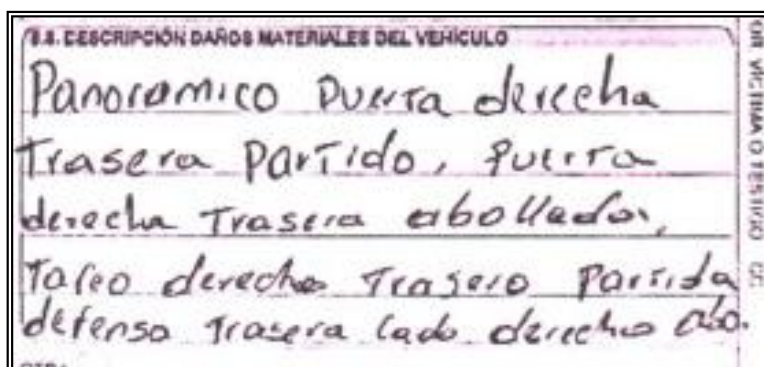 8.8. DESCRIPCIÓN DAÑOS MATERIALES DEL VEHÍCULO
Panoramico Puerta derecha
Trasera Partido, Puerta
derecha Trasera abollada,
derecho Trasero Partida
defensa Trasera lado derecho abo.
VICTIMA O TESTIGO CC